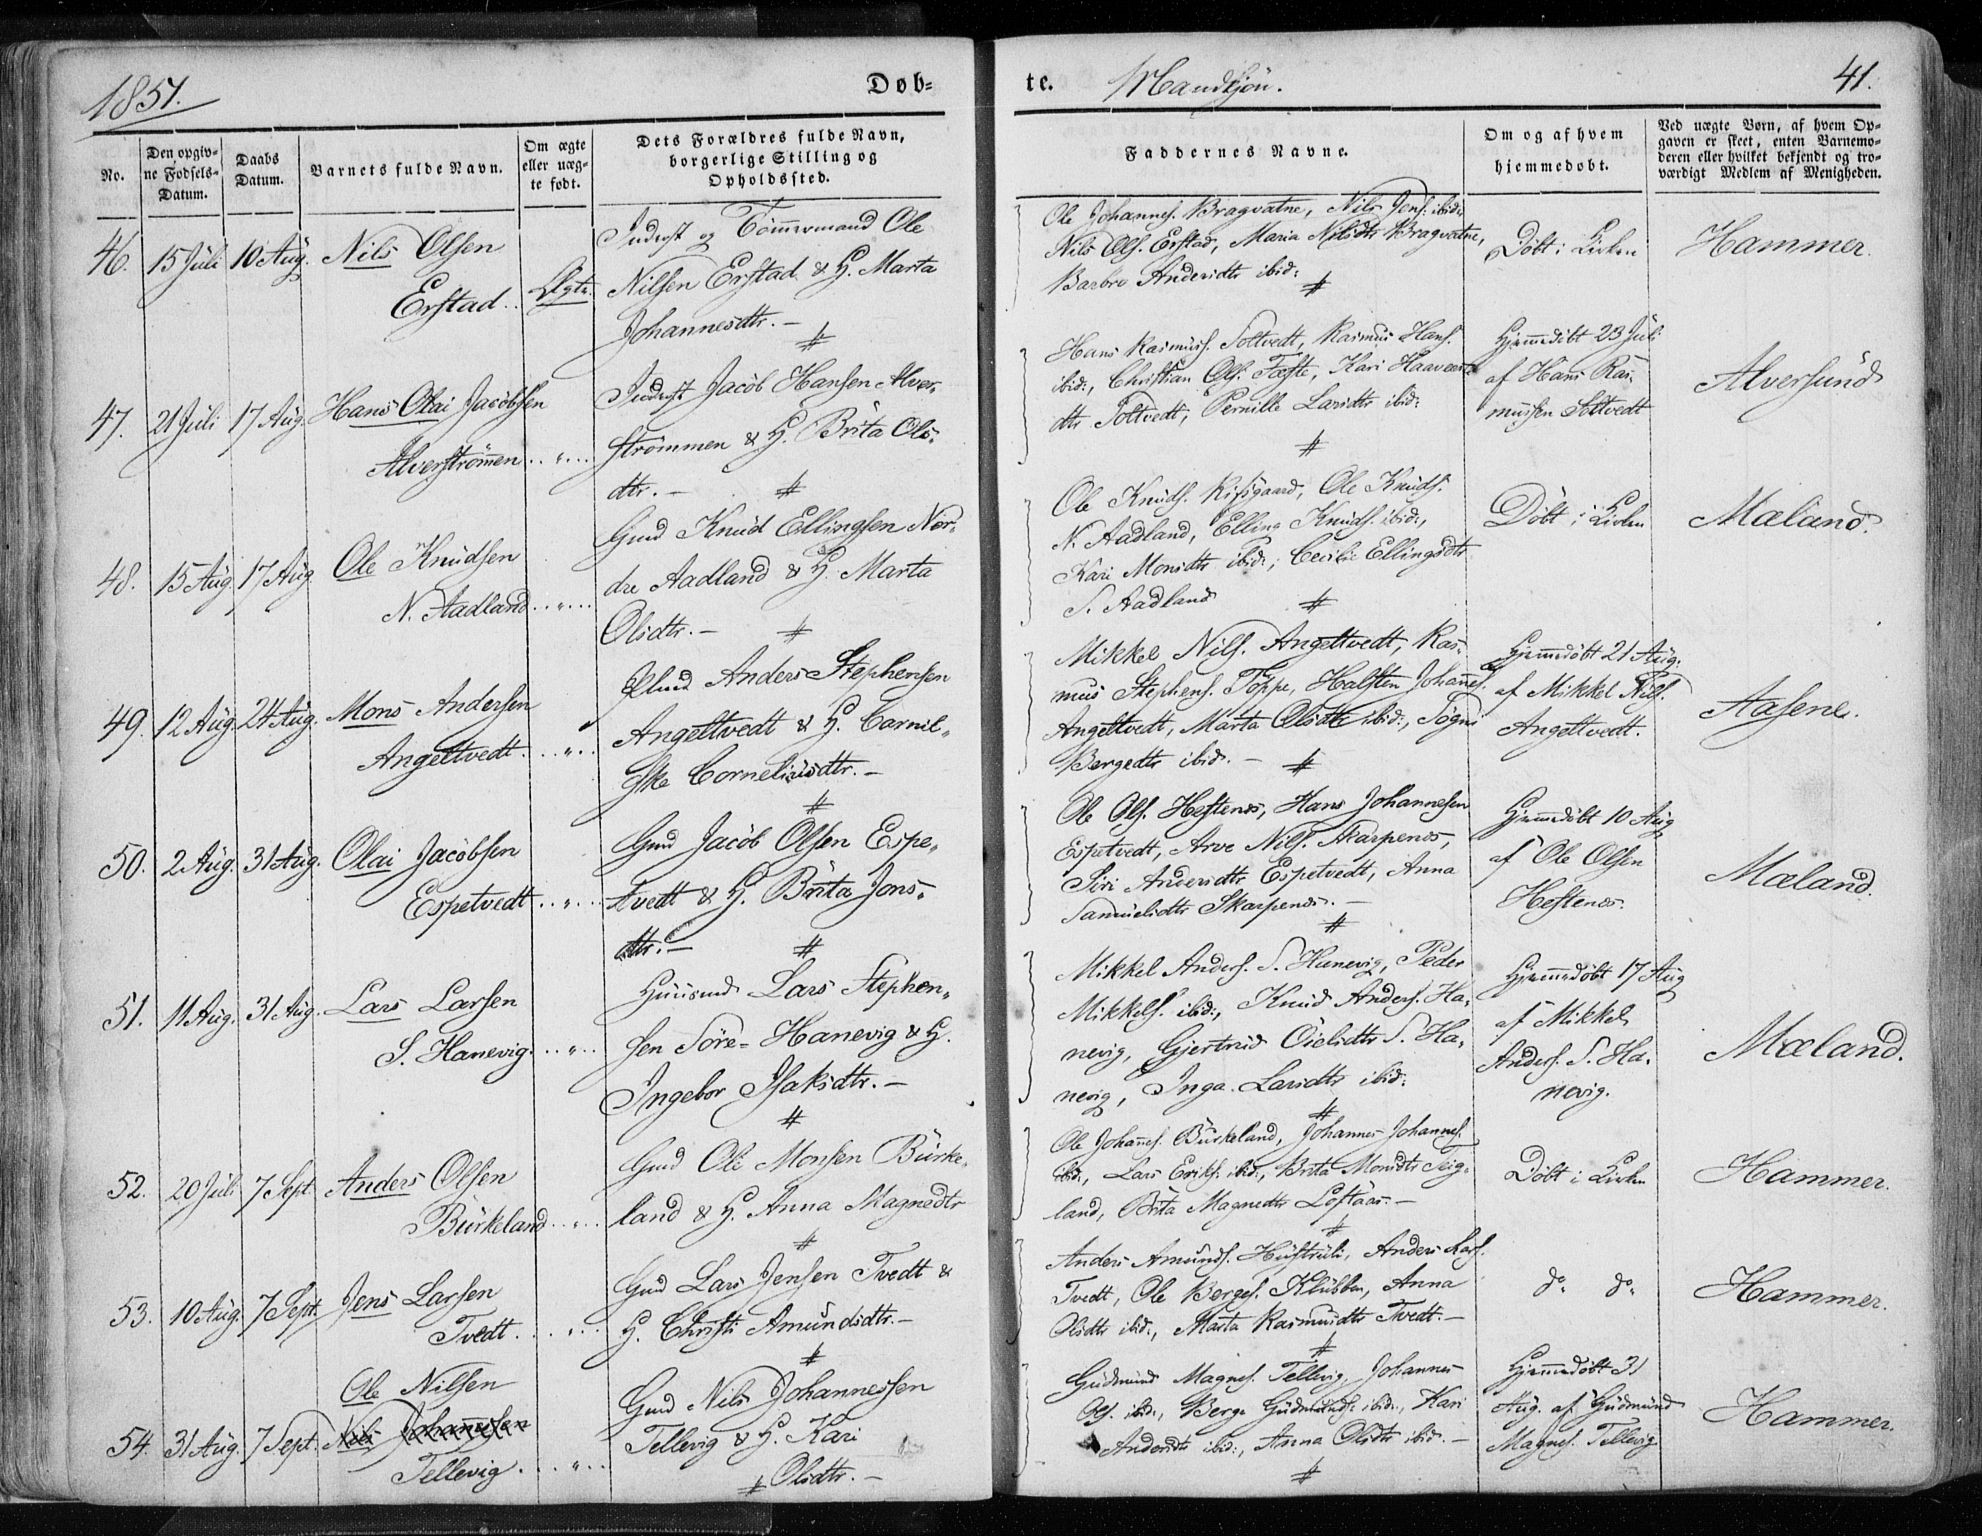 1851.
Døb-
te.
Mandkjøn.
41.
No.
Den opgiv-
ne Fødsels-
Datum.
Daabs
Datum.
Barnets fulde Navn.
Om ægte
eller uæg-
te født.
Dets Forældres fulde Navn,
borgerlige Stilling og
Opholdssted.
Faddernes Navne.
Om og af hvem
hjemmedøbt.
Ved uægte Børn, af hvem Op-
gaven er skeet, enten Barnemo-
deren eller hvilket bekjendt og tro-
værdigt Medlem af Menigheden.
46. 15 Juli 10 Aug. Nils Olsen
Erstad.. Ægte.
Inderst og Tømmermand Ole
Nilsen Erstad & H. Marta
Johannesdtr. —
Ole Johannes. Bragvatne, Nils Jens. ibid:,
Nils Ols. Erstad, Maria Nilsdtr Bragvatne,
Barbro Andersdtr ibid:
Døbt i Kirken
Hammer.
47. 21 Juli 17 Aug. Hans Olai Jacobsen
Alverstrømen .. " ...
Inderst Jacob Hansen Alver-
strømmen & H. Brita Ols-
dtr. —
Hans Rasmuss. Toltvedt, Rasmus Hans.
ibid:, Christian Ols. Tofte, Kari Haavards-
dtr Toltvedt, Pernille Larsdtr ibid:
Hjemmedøbt 23 Juli
af Hans Ras-
mussen Toltvedt
Alversund
48. 15 Aug. 17 Aug. Ole Knudsen
N. Aadland .. " ...
Gmd Knud Ellingsen Nor-
dre Aadland & H. Marta
Olsdtr. —
Ole Knuds. Risgaard, Ole Knuds.
N. Aadland, Elling Knuds. ibid:,
Kari Monsdtr ibid:, Cecilie Ellingsdtr
S. Aadland
Døbt i Kirken
Mæland.
49. 12 Aug. 24 Aug. Mons Andersen
Angeltvedt. .. " ..
Anders Stephensen
Angeltvedt & H. Cornil-
ske Corneliusdtr. —
Mikkel Nils. Angeltvedt, Ras-
mus Stephens. Toppe, Halsten Johannes.
Angeltvedt, Marta Olsdtr ibid:, Søgni
Bergedtr ibid. —
Hjemmedøbt 21 Aug.
af Mikkel Nils.
Angeltvedt.
Aasene.
50. 2 Aug. 31 Aug. Olai Jacobsen
Espetvedt .. " ...
Gmd Jacob Olsen Espe-
tvedt & H. Brita Jons-
dtr. —
Ole Ols. Hestenes, Hans Johannesen
Espetvedt, Arve Nils. Skarpenes,
Siri Andersdtr Espetvedt, Anna
Samuelsdtr Skarpenes. —
Hjemmedøbt 10 Aug
af Ole Olsen
Hestenes.
Mæland.
51. 11 Aug. 31 Aug. Lars Larsen
S. Hanevig. .. " ..
Huusmd Lars Stephen-
sen Søre- Hanevig & H.
Ingebor Isaksdtr. —
Mikkel Anders. S. Hanevig, Peder
Mikkels. ibid:, Knud Anders. Ha-
nevig, Gjertrud Oielsdtr S. Ha-
nevig, Inga Larsdtr ibid:
Hjemmedøbt 17 Aug
af Mikkel
Anders. S. Ha-
nevig.
Mæland.
52. 20 Juli 7 Sept. Anders Olsen
Burkeland .. " ..
Gmd Ole Monsen Burke-
land & H. Anna Magnedtr
Ole Johannes. Burkeland, Johannes Johannes.
ibid:, Lars Eriks. ibid:, Brita Monsdtr Seig-
land, Brita Magnedtr Loftaas. —
Døbt i Kirken
Hammer.
53. 10 Aug. 7 Sept. Jens Larsen
Tvedt. ... " ..
Gmd Lars Jensen Tvedt &
H. Christi Amundsdtr. —
Anders Amunds. Husteruli, Anders Lars.
Tvedt, Ole Berges. Klubben, Anna
Olsdtr ibid:, Marta Rasmusdtr Tvedt. —
do. do.
Hammer.
54. 31 Aug. 7 Sept. Ole Nilsen
Nils Johannesen
Tellevig. ... " ..
Gmd Nils Johannessen
Tellevig & H. Kari
Olsdtr. —
Gudmund Magnes. Tellevig, Johannes
Ols. ibid:, Berge Gudmunds. ibid:, Kari
Andersdtr ibid:, Anna Olsdtr ibid. —
Hjemmedøbt 31
Aug. af Gudmund
Magnes. Tellevig
Hammer.